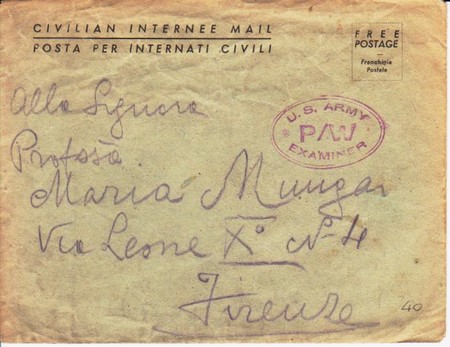 CIVILIAN INTERNEE MAIL
POSTA PER INTERNATI CIVILI
FREE
POSTAGE
Franchigia
Postale
U.S. ARMY
P/W
EXAMINER
Alla Signora
Profssa
Maria Mungai
Via Leone X° N° 4
Firenze
40